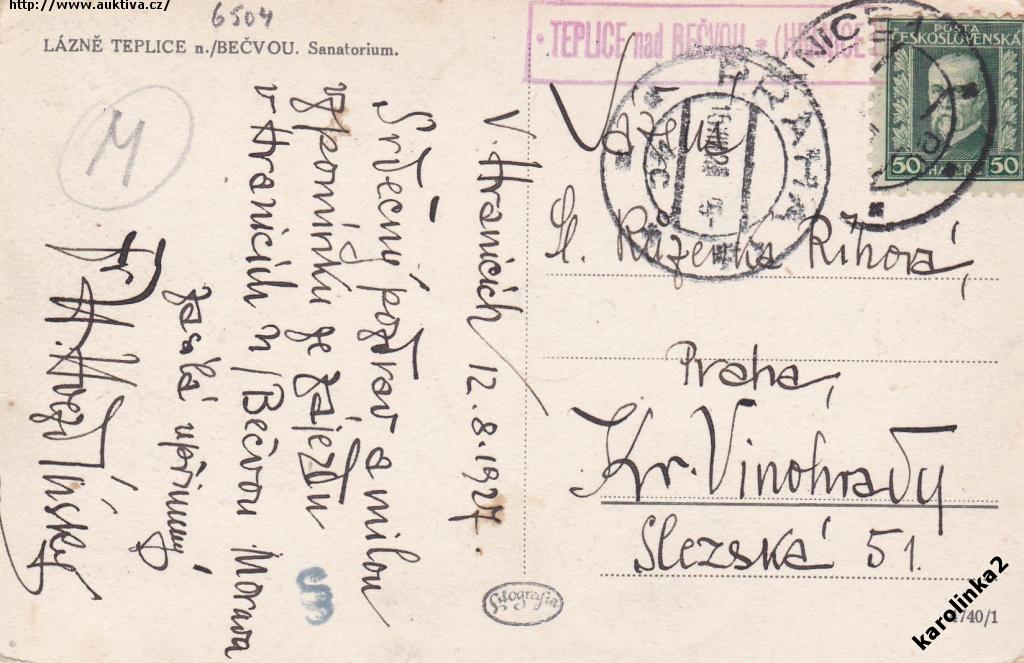 http://www.auktiva.cz/
6504
LÁZNĚ TEPLICE n./BEČVOU. Sanatorium.
M
V Hranicích 12.8.1927.
Srdečný pozdrav a milou
vzpomínku ze zájezdu
v Hranicích n/Bečvou Morava
zasílá upřímný
Fr.
TEPLICE nad BEČVOU * (HRANICE
PRAHA
POŠTA
ČESKOSLOVENSKÁ
50 HALÉŘŮ 50
Váženou
Sl. Růženka Říhová,
Praha,
Kr. Vinohrady
Slezská 51.
Fotografia
4740/1
karolinka2